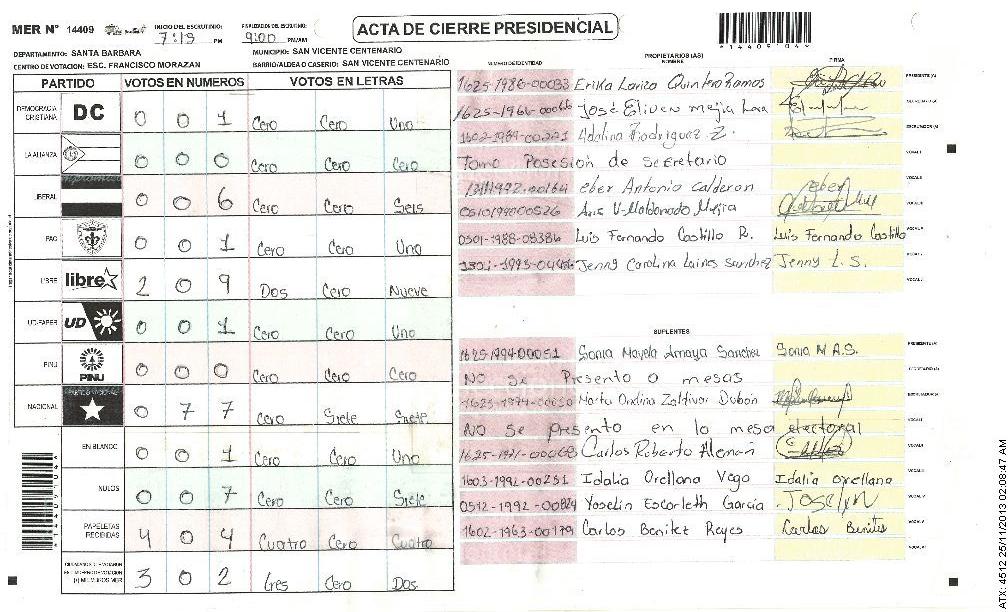 MER Nº 14409
INICIO DEL ESCRUTINIO: 7:19 PM
FINALIZACION DEL ESCRUTINIO: 9:00 PM/AM
ACTA DE CIERRE PRESIDENCIAL
*14409-04*
DEPARTAMENTO: SANTA BARBARA
MUNICIPIO: SAN VICENTE CENTENARIO
CENTRO DE VOTACION: ESC. FRANCISCO MORAZAN
BARRIO/ALDEA O CASERIO: SAN VICENTE CENTENARIO
PARTIDO VOTOS EN NUMEROS VOTOS EN LETRAS
DEMOCRACIA CRISTIANA DC 0 0 1 Cero Cero Uno
LA ALIANZA 0 0 0 Cero Cero Cero
LIBERAL 0 0 6 Cero Cero Seis
PAC 0 0 1 Cero Cero Uno
LIBRE libre 2 0 9 Dos Cero Nueve
UD-FAPER UD 0 0 1 Cero Cero Uno
PINU PINU 0 0 0 Cero Cero Cero
NACIONAL 0 7 7 Cero Siete Siete
EN BLANCO 0 0 1 Cero Cero Uno
NULOS 0 0 7 Cero Cero Siete
PAPELETAS RECIBIDAS 4 0 4 Cuatro Cero Cuatro
3 0 2 tres Cero Dos
NUMERO DE IDENTIDAD
PROPIETARIOS (AS)
NOMBRE
FIRMA
1625-1986-00033 Erika Lariza Quintero Ramos PRESIDENTE (A)
1625-1966-00066 José Eliven mejia Lara SECRETARIO (A)
1602-1989-00221 Adelina Rodriguez Z. ESCRUTADOR (A)
Tomo Posesion de Secretario VOCAL I
eber Antonio Calderon eber VOCAL II
V. Maldonado Mejia VOCAL III
0501-1988-08386 Luis Fernando Castillo R. Luis Fernando Castillo
Jenny Carolina Laines Sanchez Jenny L. S.
SUPLENTES
1625-1994-00051 Sonia Mayela Amaya Sanchez Sonia M A.S. PRESIDENTE (A)
NO se Presento a mesas SECRETARIO (A)
1625-1974-00050 Marta Ondina Zaldivar Dubon ESCRUTADOR (A)
NO se presento en la mesa electoral VOCAL I
1625-1971-00068 Carlos Roberto Alemán VOCAL II
1603-1992-00251 Idalia Orellana Vega Idalia orellana
0512-1992-00824 Yoselin Escorleth Garcia Joselyn
1602-1963-00179 Carlos Benitez Reyes Carlos Benites
ATX: 4512 25/11/2013 02:08:47 AM